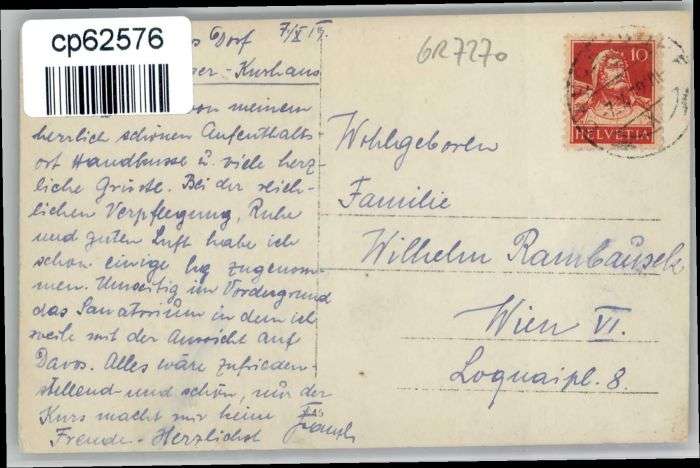 cp62576
Dorf 7/X 19.
GR7270
-Kurhaus
10
HELVETIA
von meinem
herrlich schönen Aufenthalts-
ort Handküsse u. viele herz-
liche Grüsse. Bei der reich-
lichen Verpflegung, Ruhe
und guten Luft habe ich
schon einige kg zugenom-
men. Umseitig im Vordergrund
das Sanatorium in dem ich
weile mit der Aussicht auf
Davos. Alles wäre zufrieden-
stellend und schön, nur der
Kurs macht mir keine
Freude - Herzlichst
Wohlgeboren
Familie
Wilhelm Rambausek
Wien VI.
Loquaipl. 8.